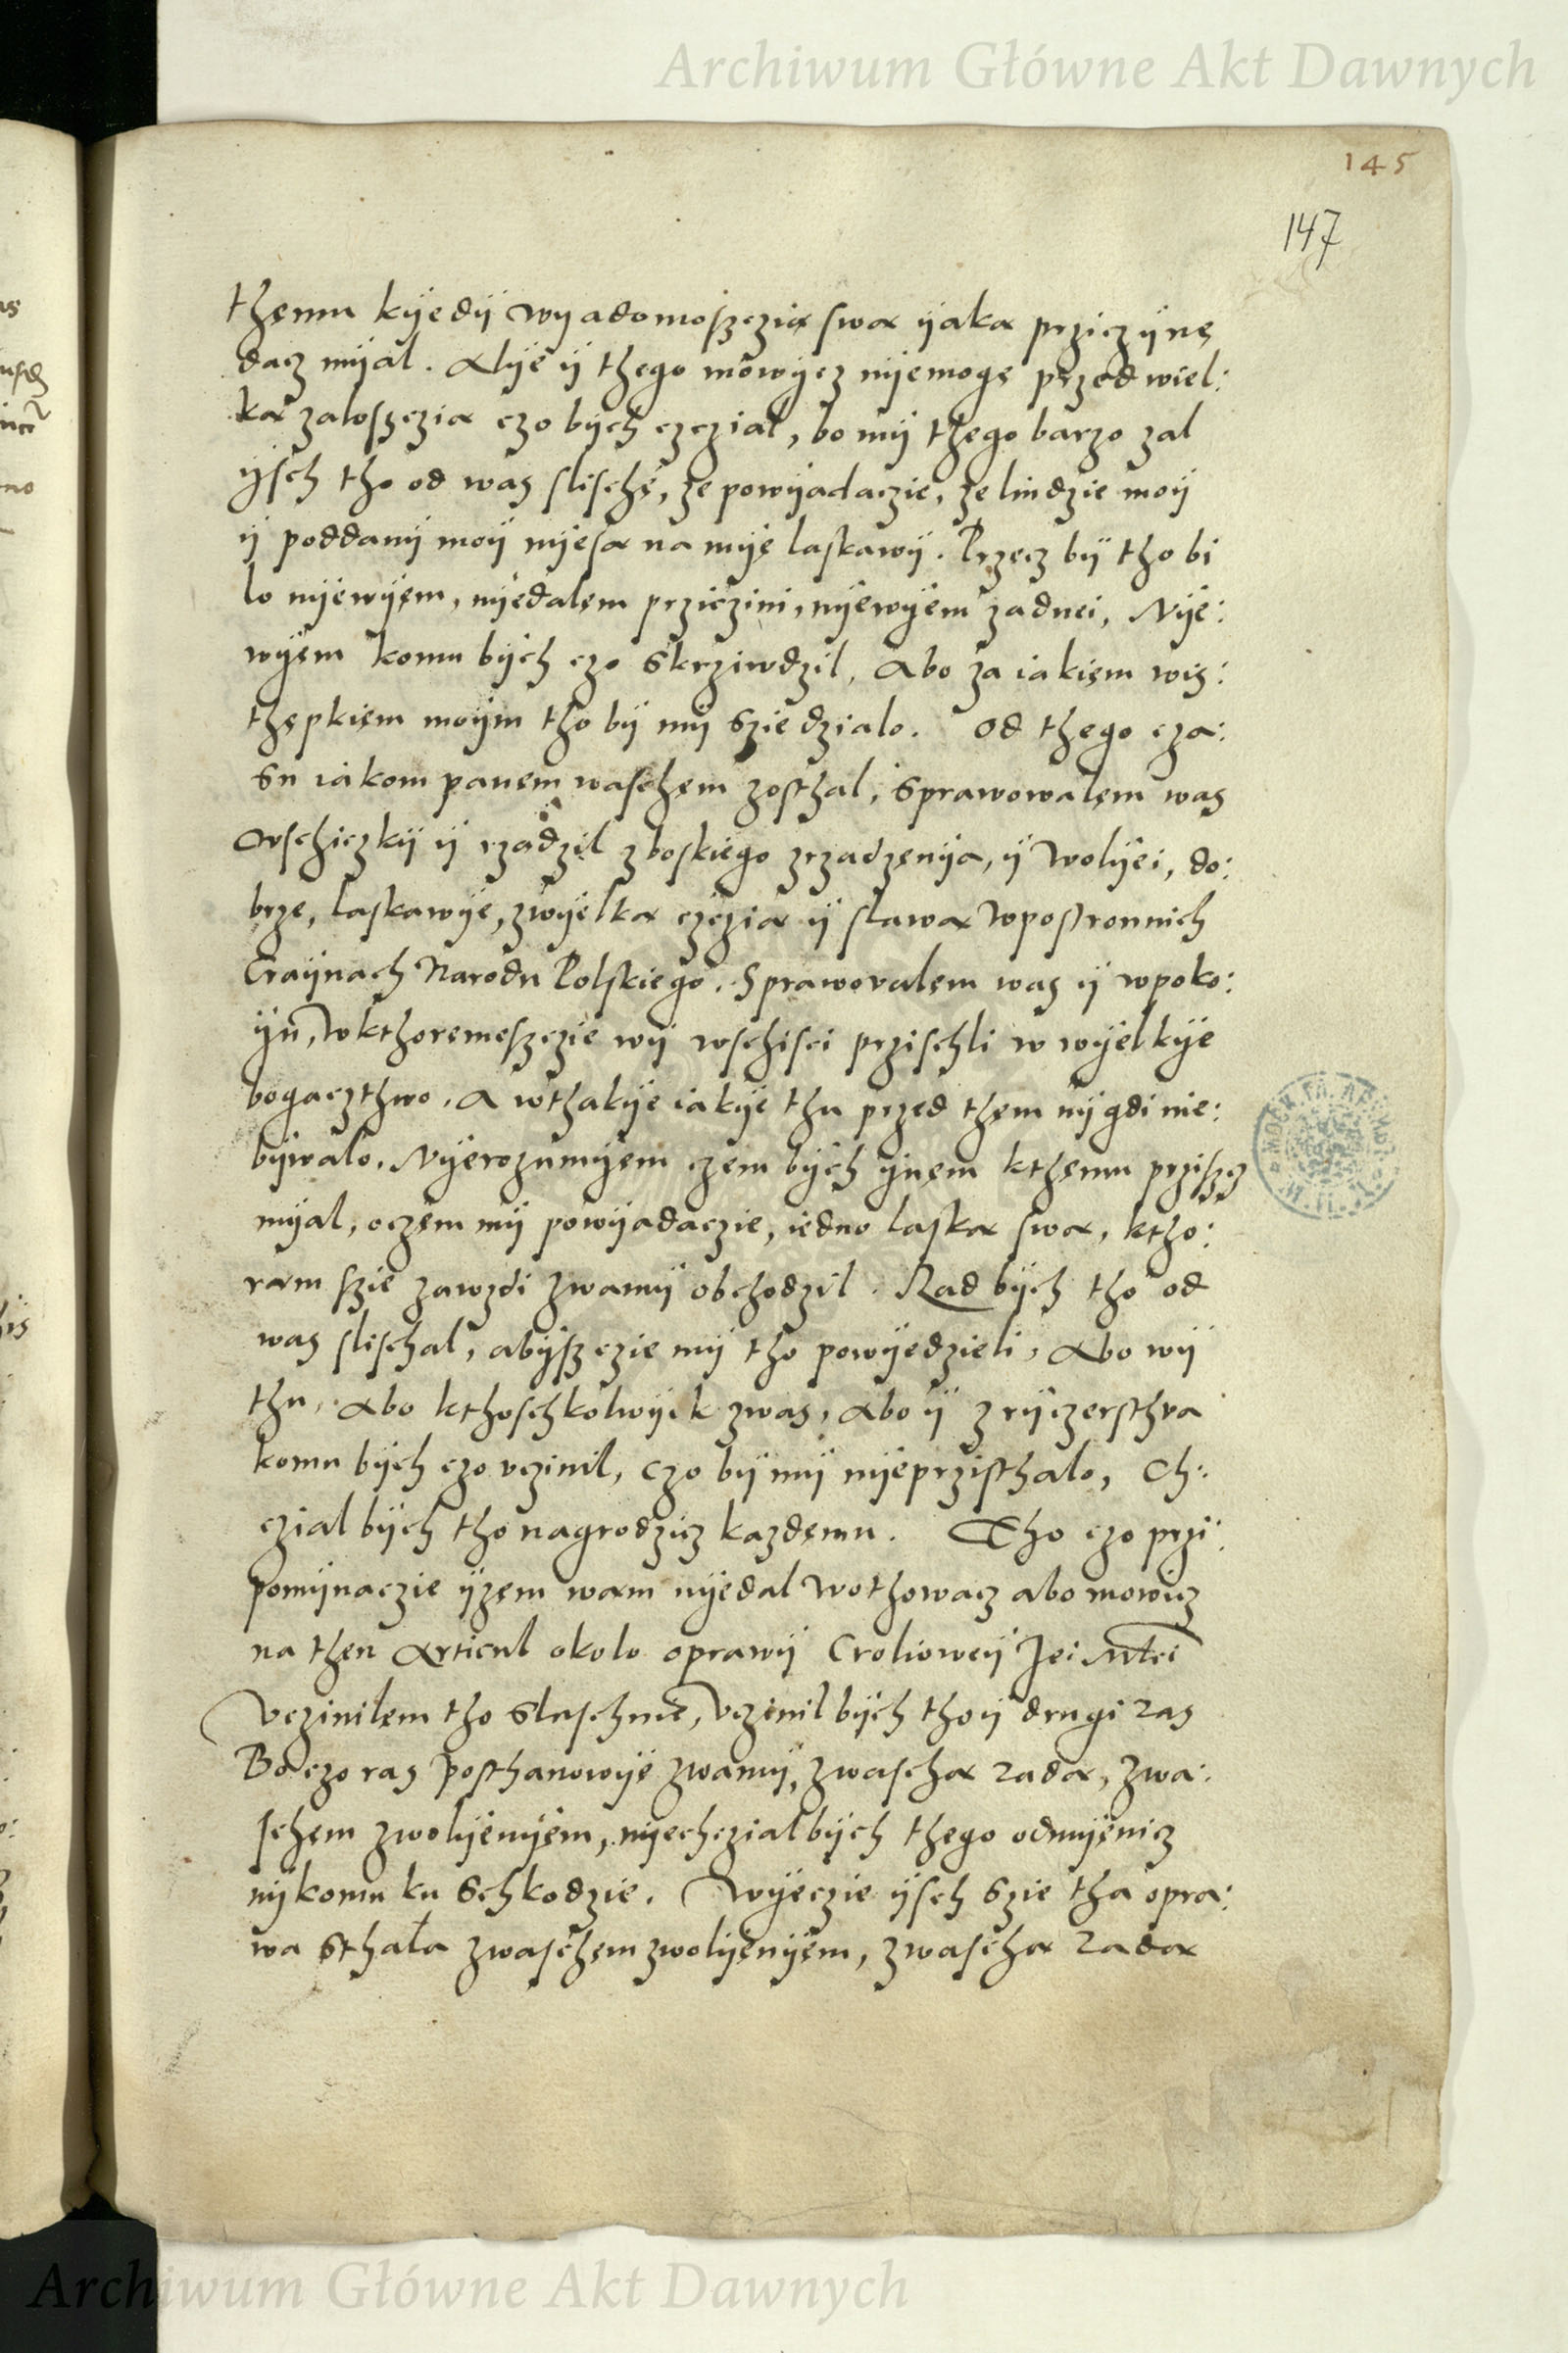 Archiwum Główne Akt Dawnych
145
147
thęmu kÿedÿ wyadomoszczią swą ÿaką prziczÿnę
dacz mÿal. Alÿe ÿ thego mowÿcz nÿemogę przed wiel:
ką zaloszczią czo bÿch czczial, bo mÿ thego barzo zal
ÿsch tho od was slischę, ze powÿadaczie, ze liudzie moÿ
ÿ poddanÿ moÿ nÿesą na mÿę laskawÿ. Przecz bÿ tho bi
lo nÿewÿęm, nÿedalęm prziczini, nÿewÿem zadnei, Nÿe:
wÿęm komu bÿch czo skrziwdzil, Abo za iakięm wis:
thępkięm moÿm tho bÿ mÿ szie dzialo. Od thego cza:
su iakom panem waschęm zosthal, sprawowalęm was
wschiczkÿ ÿ rządzil z boskiego zrządzęnÿa, ÿ wolÿei, do:
brze, laskawÿe, zwÿelką czczią ÿ slawą w postronnich
Craÿnach Narodu Polskiego. Sprawovalęm was ÿ w poko:
ÿu, W kthoremeszczie wÿ wschisci przischli w wÿelkÿe
bogaczthwo. A wthakÿe iakÿe thu przed thęm nÿgdi nie:
bÿwalo. Nÿerozumÿęm czem bÿch ÿnęm kthęmu prziszcz
mÿal, oczęm mÿ powÿadaczie, iedno laską swą, ktho:
ram szie zawzdi zwamÿ obchodzil. Rad bÿch tho od
was slischal, abÿszczie mÿ tho powÿedzieli, Abo wÿ
thu, Abo kthoschkolwÿek zwas, Abo ÿ z rÿczersthva
komu bÿch czo vczinil, czo bÿ mÿ nÿeprzisthalo, Ch:
czial bÿch tho nagrodzicz kazdęmu. Tho czo przi:
pomÿnaczie ÿzęm wam nÿedal wothowacz abo mowicz
na then Articul okolo oprawÿ Crolioweÿ Jei Mćci
Vczinilęm tho sluschnie, Vczinil bÿch tho ÿ drugi ras
Bo czo ras posthanowÿę zwamÿ, zwaschą radą, zwa:
schęm zwolÿenÿęm, nÿechczial bÿch thego odmÿęnicz
nÿkomu ku schkodzie. Wÿeczie ÿsch szie tha opra:
wa sthała zwaschęm zwolÿęnÿęm, zwaschą radą
Archiwum Główne Akt Dawnych